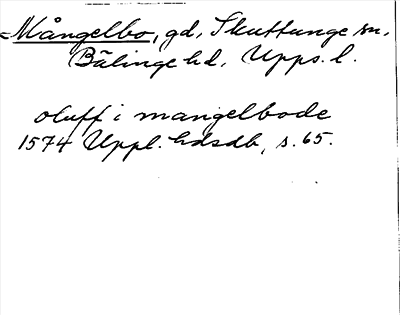 Mångelbo, gd, Skuttunge sn,
Bälinge hd, Upps. l.
oluff i mangelbode
1574 Uppl. hdsdb, s. 65.